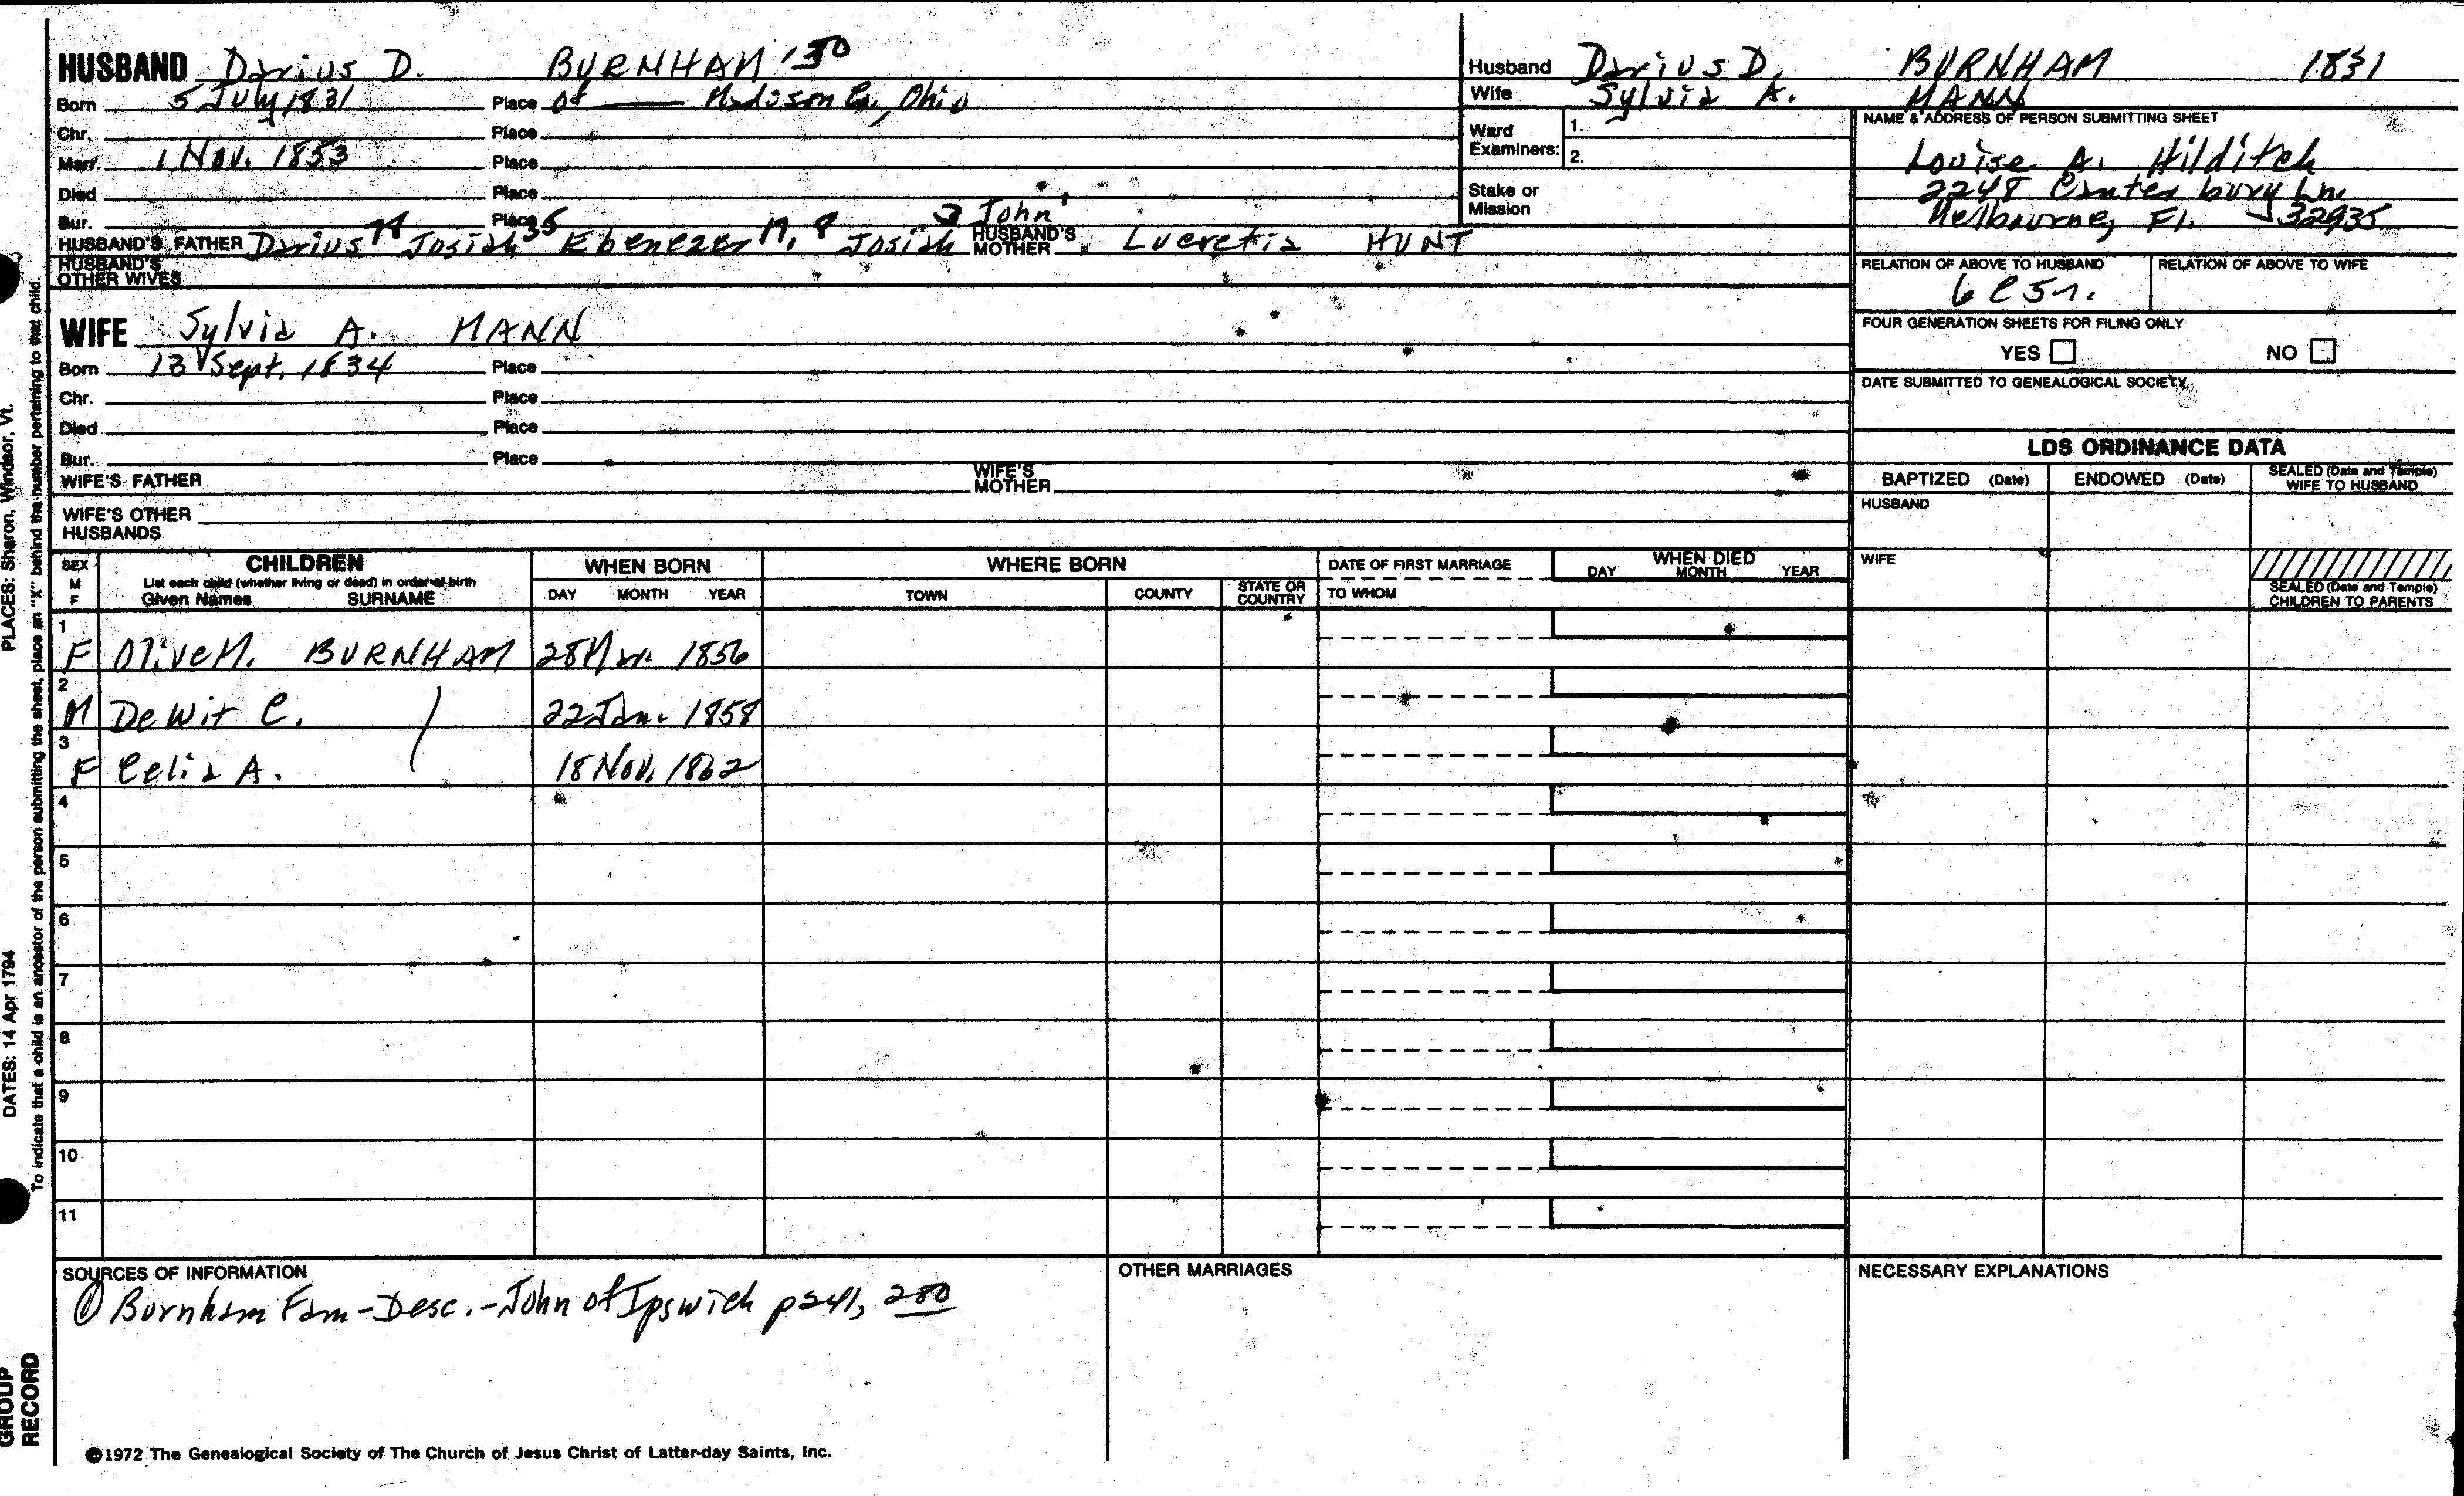 HUSBAND Darius D. BURNHAM 130
Born 5 July 1831 Place of Madison Co., Ohio
Chr. Place
Marr. 1 Nov. 1853 Place
Died Place
Bur. Place
HUSBAND'S FATHER Darius 78 Josiah 35 Ebenezer 17, 8 Josiah 3 John 1 HUSBAND'S MOTHER Lucretia HUNT
HUSBAND'S OTHER WIVES
WIFE Sylvia A. MANN
Born 13 Sept. 1834 Place
Chr. Place
Died Place
Bur. Place
WIFE'S FATHER WIFE'S MOTHER
WIFE'S OTHER HUSBANDS
Husband Darius D. BURNHAM 1831
Wife Sylvia A. MANN
Ward Examiners: 1.
2.
Stake or Mission
NAME & ADDRESS OF PERSON SUBMITTING SHEET
Louise A. Hilditch
2248 Canterbury Ln.
Melbourne, Fl. 32935
RELATION OF ABOVE TO HUSBAND RELATION OF ABOVE TO WIFE
FOUR GENERATION SHEETS FOR FILING ONLY
YES NO
DATE SUBMITTED TO GENEALOGICAL SOCIETY
LDS ORDINANCE DATA
BAPTIZED (Date) ENDOWED (Date) SEALED (Date and Temple) WIFE TO HUSBAND
HUSBAND
WIFE
SEALED (Date and Temple) CHILDREN TO PARENTS
SEX M F CHILDREN WHEN BORN WHERE BORN DATE OF FIRST MARRIAGE WHEN DIED
List each child (whether living or dead) in order of birth
Given Names SURNAME DAY MONTH YEAR TOWN COUNTY STATE OR COUNTRY TO WHOM DAY MONTH YEAR
1 F Olive M. BURNHAM 28 Mar. 1856
2 M DeWit C. 22 Jan. 1858
3 F Celia A. 18 Nov. 1862
4
5
6
7
8
9
10
11
SOURCES OF INFORMATION
① Burnham Fam - Desc. - John of Ipswich p 241, 280
OTHER MARRIAGES
NECESSARY EXPLANATIONS
©1972 The Genealogical Society of The Church of Jesus Christ of Latter-day Saints, Inc.
PLACES: Sharon, Windsor, Vt.
DATES: 14 Apr 1794
To indicate that a child is an ancestor of the person submitting the sheet, place an "X" behind the number pertaining to that child.
GROUP RECORD